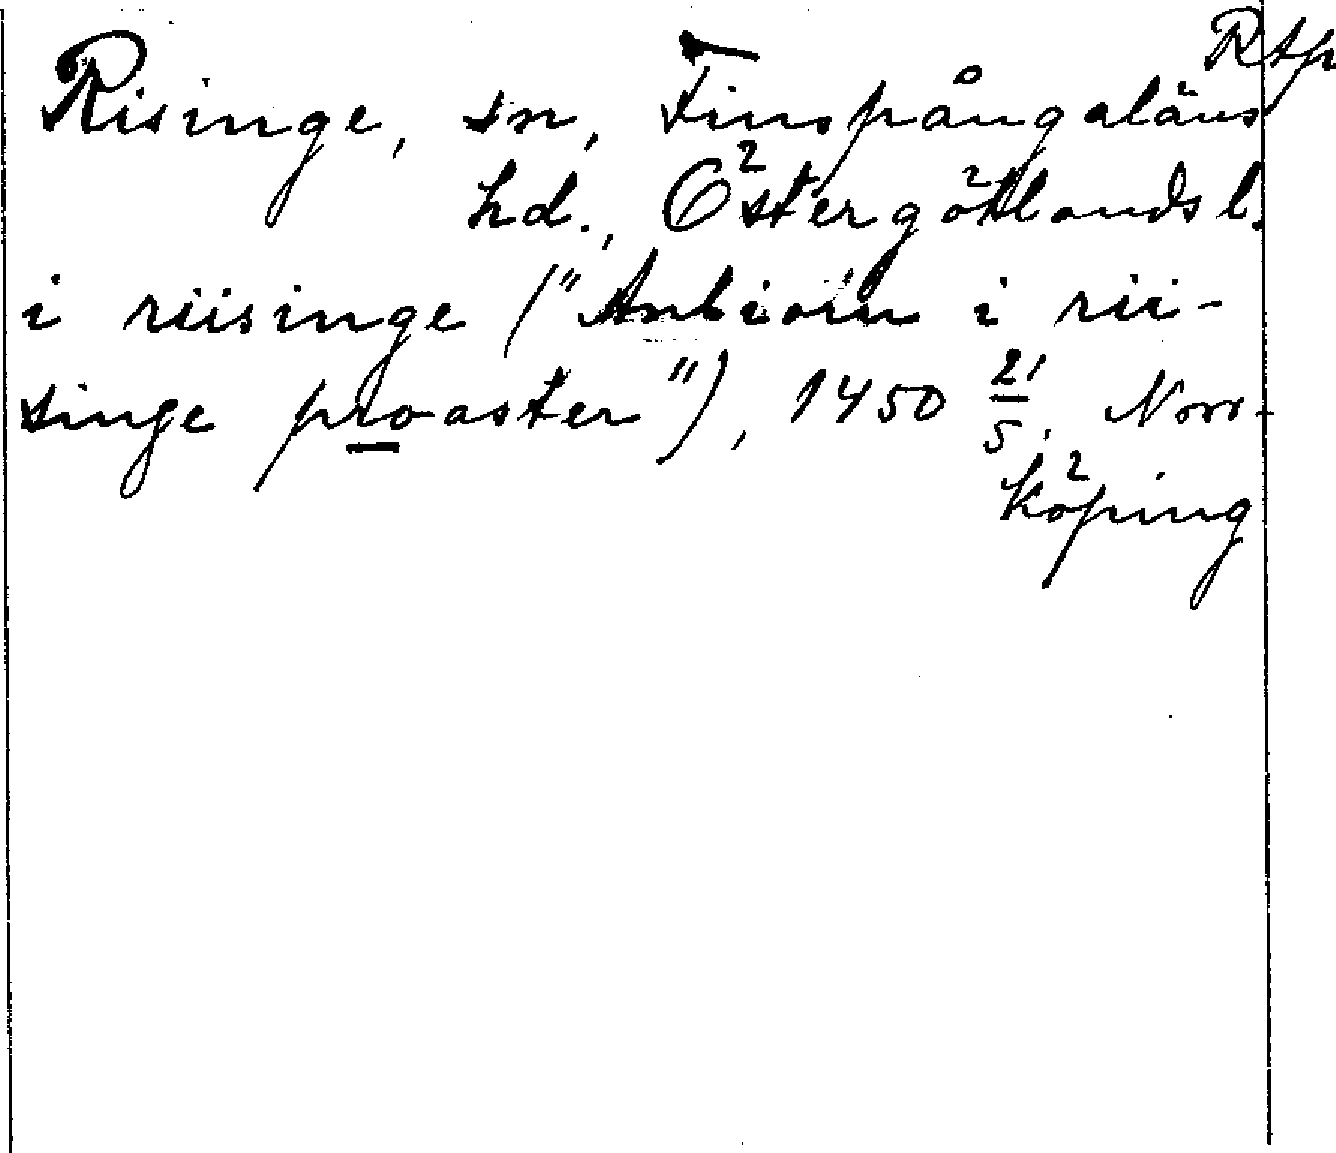 Rtp
Risinge, sn, Finspångaläns
hd., Östergötlands l.
i riisinge ("Anbiörn i rii-
singe proaster"), 1450 21/5, Norr-
köping